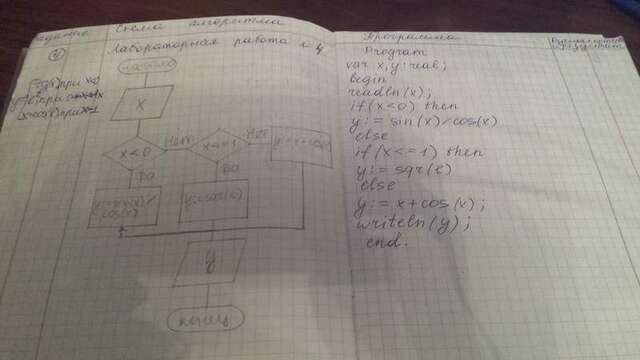 Схема алгоритма
Лабораторная работа № 4
начало
x
x<0
Нет
x<=1
Нет
y:=x+cos(x)
Да
Да
y:=sin(x)/
cos(x)
y
конец
Программа
Program
var x,y:real;
begin
readln(x);
if(x<0) then
y:=sin(x)/cos(x)
else
if(x<=1) then
y:=sqr(e)
else
y:=x+cos(x);
writeln(y);
end.